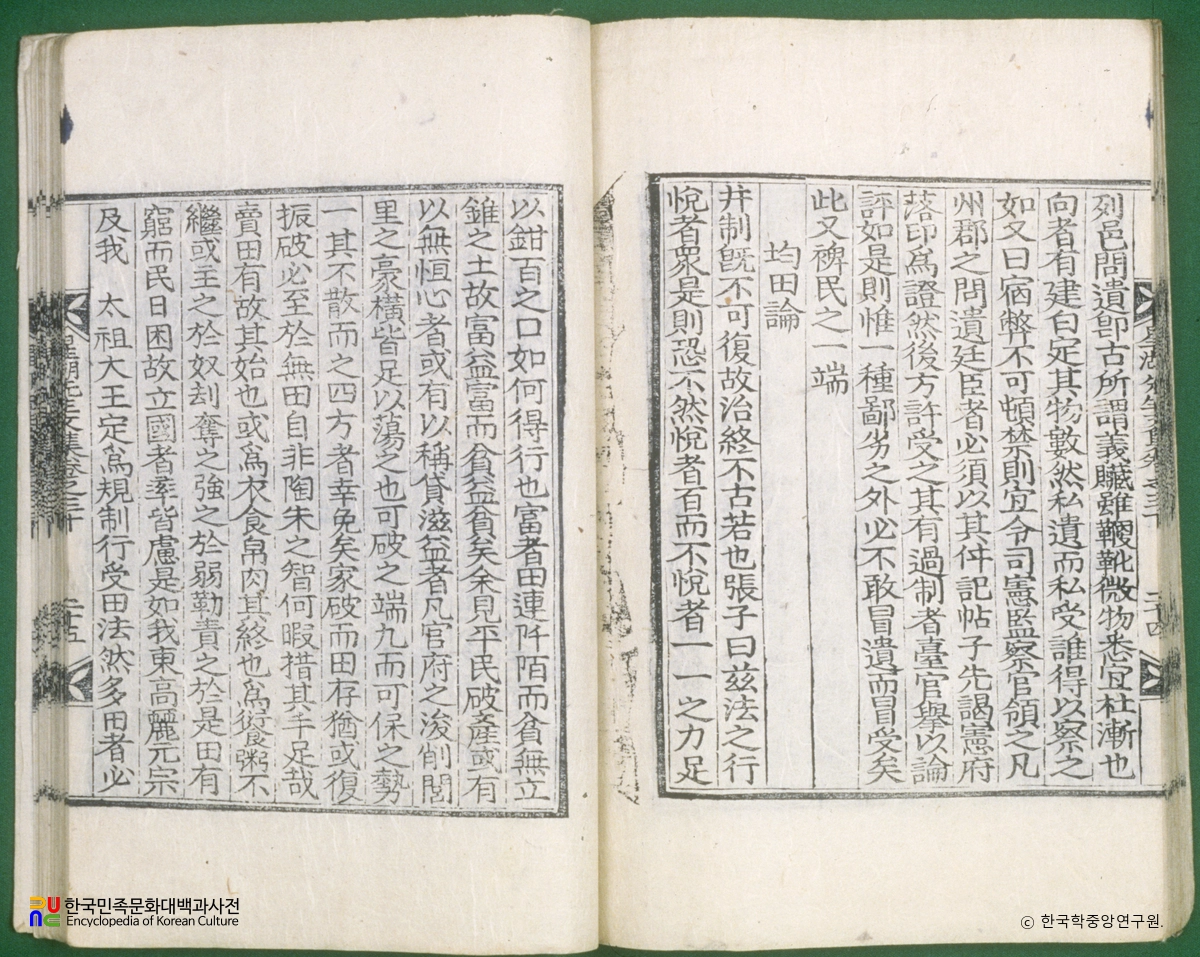 列邑問遺卽古所謂義贓雖鞭靴微物悉宜杜漸也
向者有建白定其物數然私遺而私受誰得以察之
如又曰宿弊不可頓禁則宜令司憲監察官領之凡
州郡之問遺廷臣者必須以其件記帖子先謁憲府
落印爲證然後方許受之其有過制者臺官擧以論
評如是則惟一種鄙劣之外必不敢冒遺而冒受矣
此又裨民之一端
均田論
井制旣不可復故治終不古若也張子曰兹法之行
悅者衆是則恐不然悅者百而不悅者一一之力足
二十四
以鉗百之口如何得行也富者田連阡陌而貧無立
錐之土故富益富而貧益貧矣余見平民破產或有
以無恒心者或有以稱貸滋益者凡官府之浚削閭
里之豪橫皆足以蕩之也可破之端九而可保之勢
一其不散而之四方者幸免矣家破而田存猶或復
振破必至於無田自非陶朱之智何暇措其手足哉
賣田有故其始也或爲衣食帛肉其終也爲衍餐粥不
繼或主之於奴刦奪之強之於弱勒責之於是田有
窮而民日困故立國者率皆慮是如我東高麗元宗
及我 太祖大王定爲規制行受田法然多田者必
星湖先生文集卷之三十
二十五
한국민족문화대백과사전
Encyclopedia of Korean Culture
ⓒ 한국학중앙연구원.